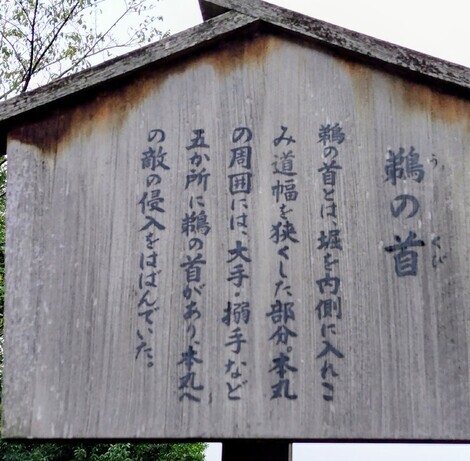 鵜の首
う
くび
鵜の首とは、堀を内側に入れこ
み道幅を狭くした部分。本丸
の周囲には、大手・搦手など
五か所に鵜の首があり、本丸へ
の敵の侵入をはばんでいた。